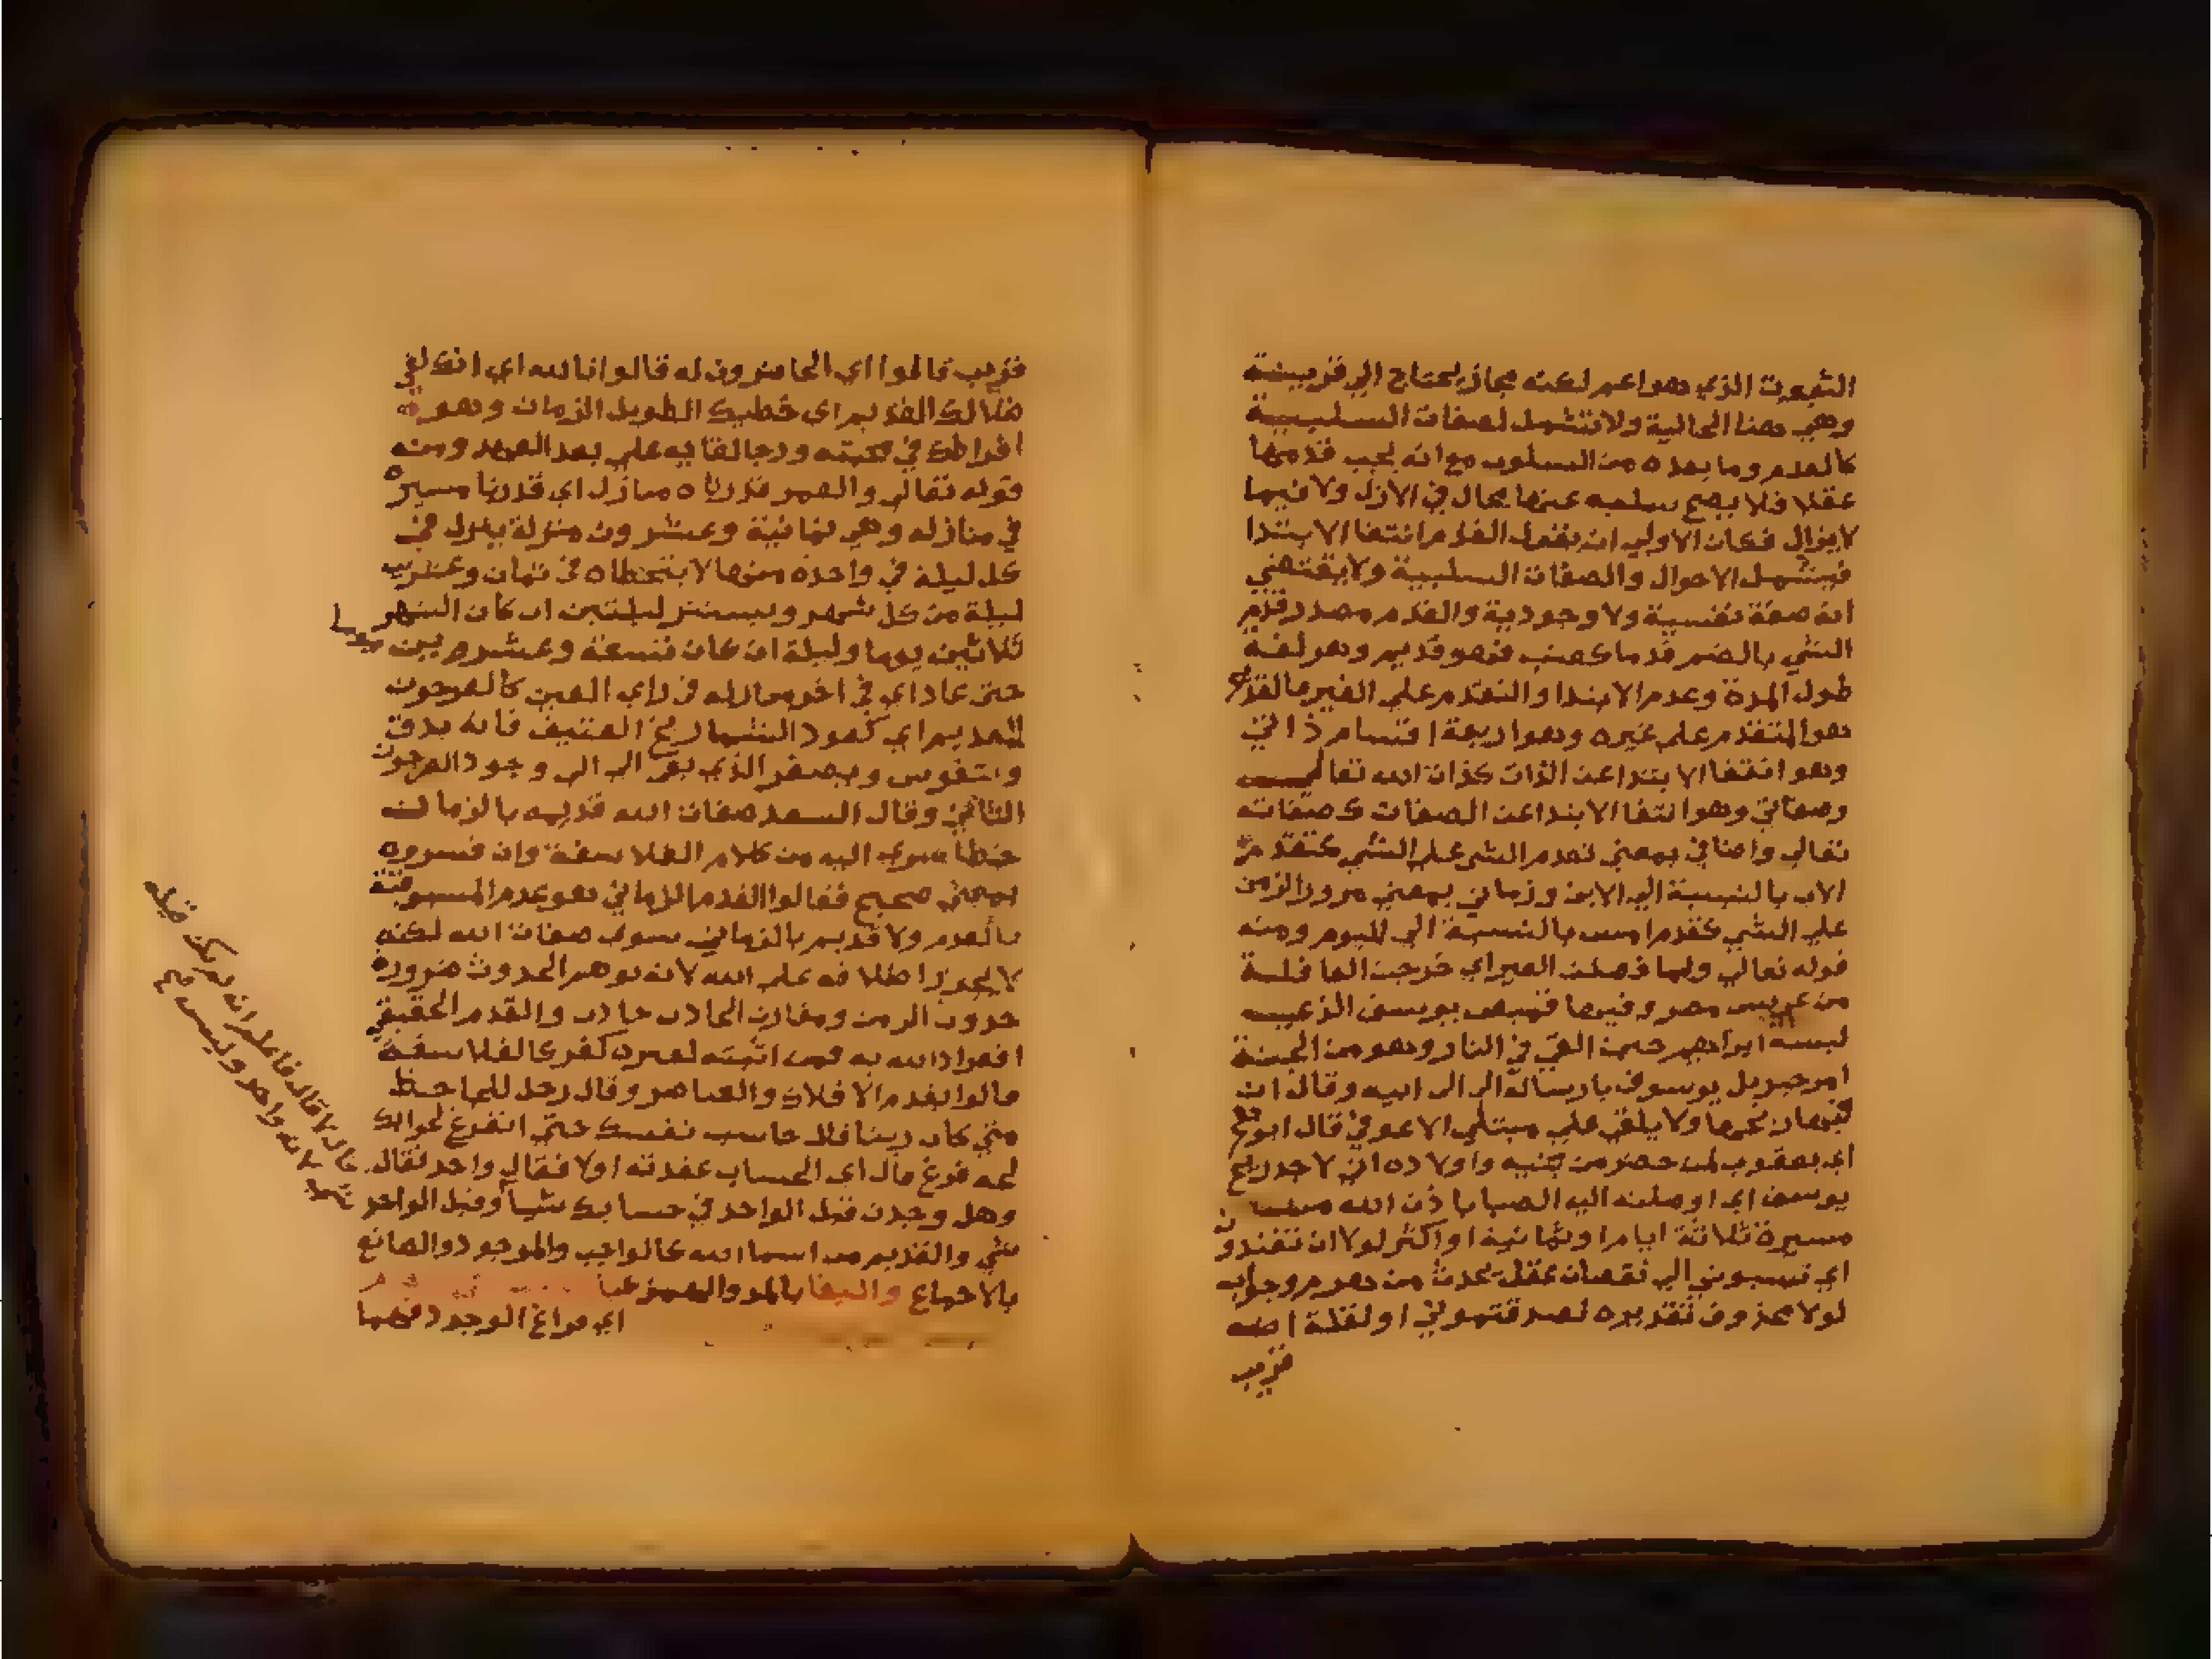 الثبوت الذي هو اعم لكنه مجاز يحتاج الي قرينة
وهي هنا الحالية ولا تشمل لصفات السلبية
كالعدم وما بعده من السلوب مع انه يجب قدمها
عقلا فلا يصح سلبه عنها بحال في الازل ولا فيها
لايزال فكان الاولي ان يقول القدم انتفا الابتدا
فيشمل الاحوال والصفات السلبية ولا يقتضي
انه صفة نفسية ولا وجودية والقدم مصدر قدم
الشي بالضم قدما كعنب فهو قديم وهو لغة
طول المدة وعدم الابتدا والتقدم علي الغير فالقديم
هو المتقدم علي غيره وهو اربعة اقسام ذاتي
وهو انتفا الابتدا عن الذات كذات الله تعالي
وصفاتي وهو انتفا الابتدا عن الصفات كصفاته
تعالي واضافي بمعني تقدم الشي علي الشي كتقدم
الاب بالنسبة الي الابن وزماني بمعني مرور الزمن
علي الشي كقدم امس بالنسبة الي اليوم ومنه
قوله تعالي ولما فصلت العير اي خرجت القافلة
من عريس مصر وفيها قميص يوسف الذي
لبسه ابراهيم حين القي في النار وهو من الجنة
امر جبريل يوسف بارساله الي ابيه وقال ان
فيها ريحها ولا يلقي علي مبتلي الا عوفي قال ابوهم
اي يعقوب لمن حضر من بنيه واولاده اني لاجد ريح
يوسف اي اوصلته اليه الصبا باذن الله من
مسيرة ثلاثة ايام او ثمانية او اكثر لولا ان تفندون
اي تنسبوني الي نقصان عقل يحدث من هرم وجواب
لولا محذوف تقديره لصدقتموني او لقلت انه
قريب
قريب قالوا اي الحاضرون له قالوا تالله اي انك لفي
ضلالك القديم اي خطيك الطويل الزمان وهو
افراطك في محبته ورجا لقايه علي بعد العهد ومنه
قوله تعالي والقمر قدرناه منازل اي قدرنا مسيره
في منازله وهي ثمانية وعشرون منزلة ينزل في
كل ليلة في واحدة منها لا يتخطاه في ثمان وعشرين
ليلة من كل شهر ويستتر ليلتين ان كان الشهر
ثلاثين يوما وليلة ان كان تسعة وعشرين يوما
حتي عاد اي في اخر منازله في راي العين كالعرجون
القديم اي كعود الشماريخ العتيق فانه يدق
ويتقوس ويصفر الذي بقي الي وجود العرجون
الثاني وقال السعد صفات الله قديمة بالزمان
خطا سري اليه من كلام الفلاسفة وان فسروه
بمعني صحيح فقالوا القدم الزماني هو عدم المسبوقية
بالعدم ولا قديم بالزماني سوي صفات الله لكنه
لا يجوز اطلاقه علي الله لانه يوهم الحدوث ضرورة
حدوث الزمن ومقارن الحادث حادث والقدم الحقيقي
انفراد الله به فمن اثبته لغيره كفر كالفلاسفة
قالوا بقدم الافلاك والعناصر وقال رجل للجاحظ
متي كان ربنا فقال حاسب نفسك حتي اتفرغ لجوابك
لمه فرغ قال اي الحساب عقدته اولا فقال واحد فقال
وهل وجدت قبل الواحد في حسابك شيا وقبل الواحد
شي والقديم من اسما الله كالواجب والموجود والصانع
بالاجماع والبقا بالمد والهمز
اي فراغ الوجود فهما
قال لا قال فاعلم انه لم يكن قبله
شي لانه واحد وليس مع